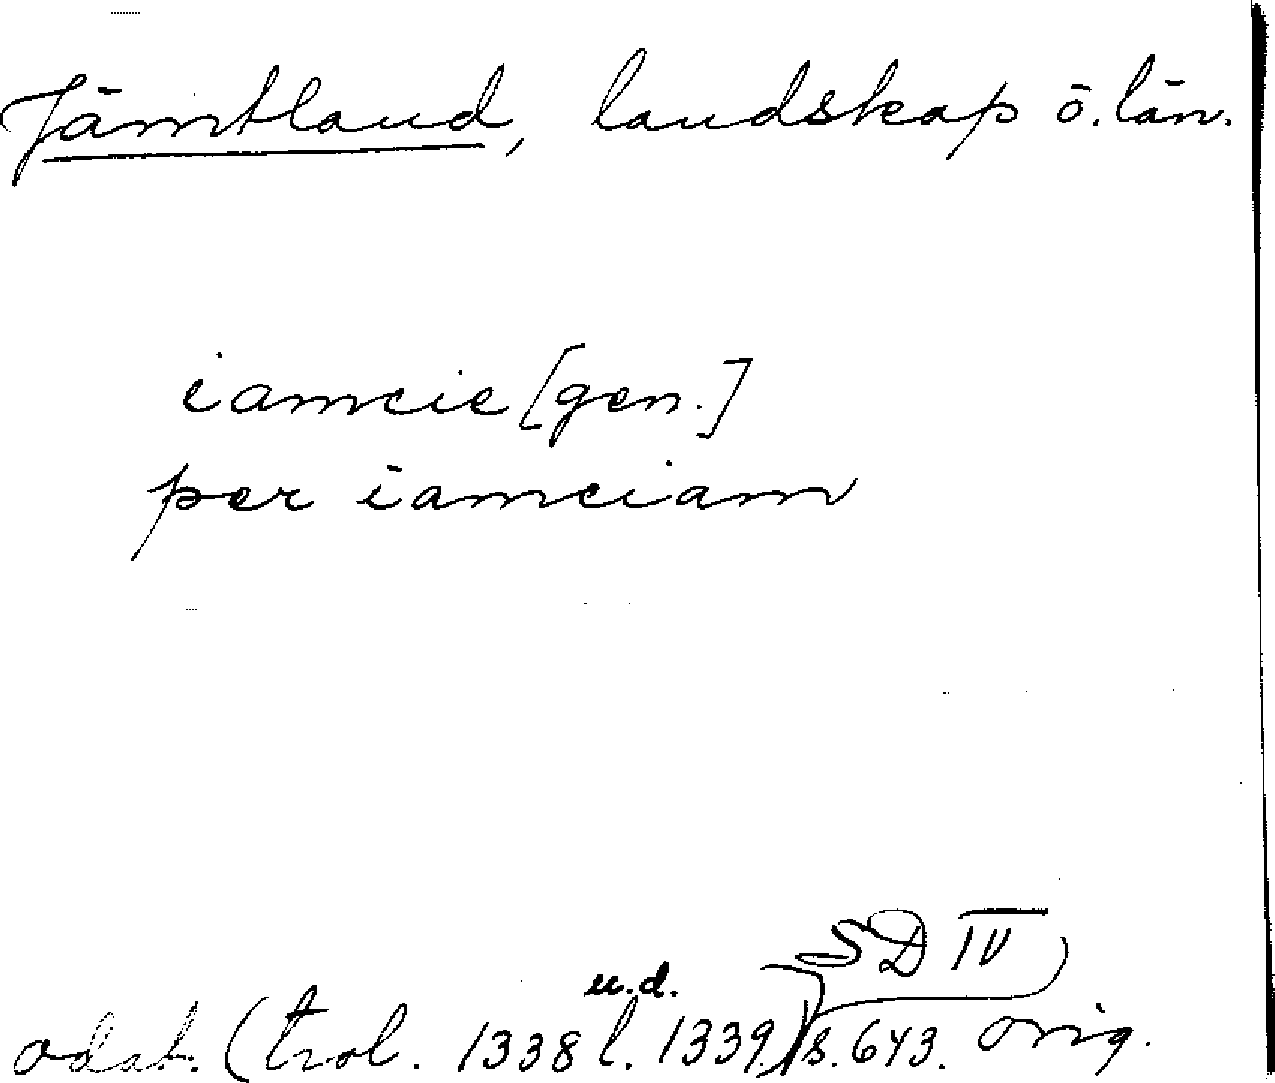 Jämtland, landskap o. län.
iamcie [gen.]
per iamciam
SD IV
u.d.
odat. (trol. 1338 l. 1339) s. 643. orig.